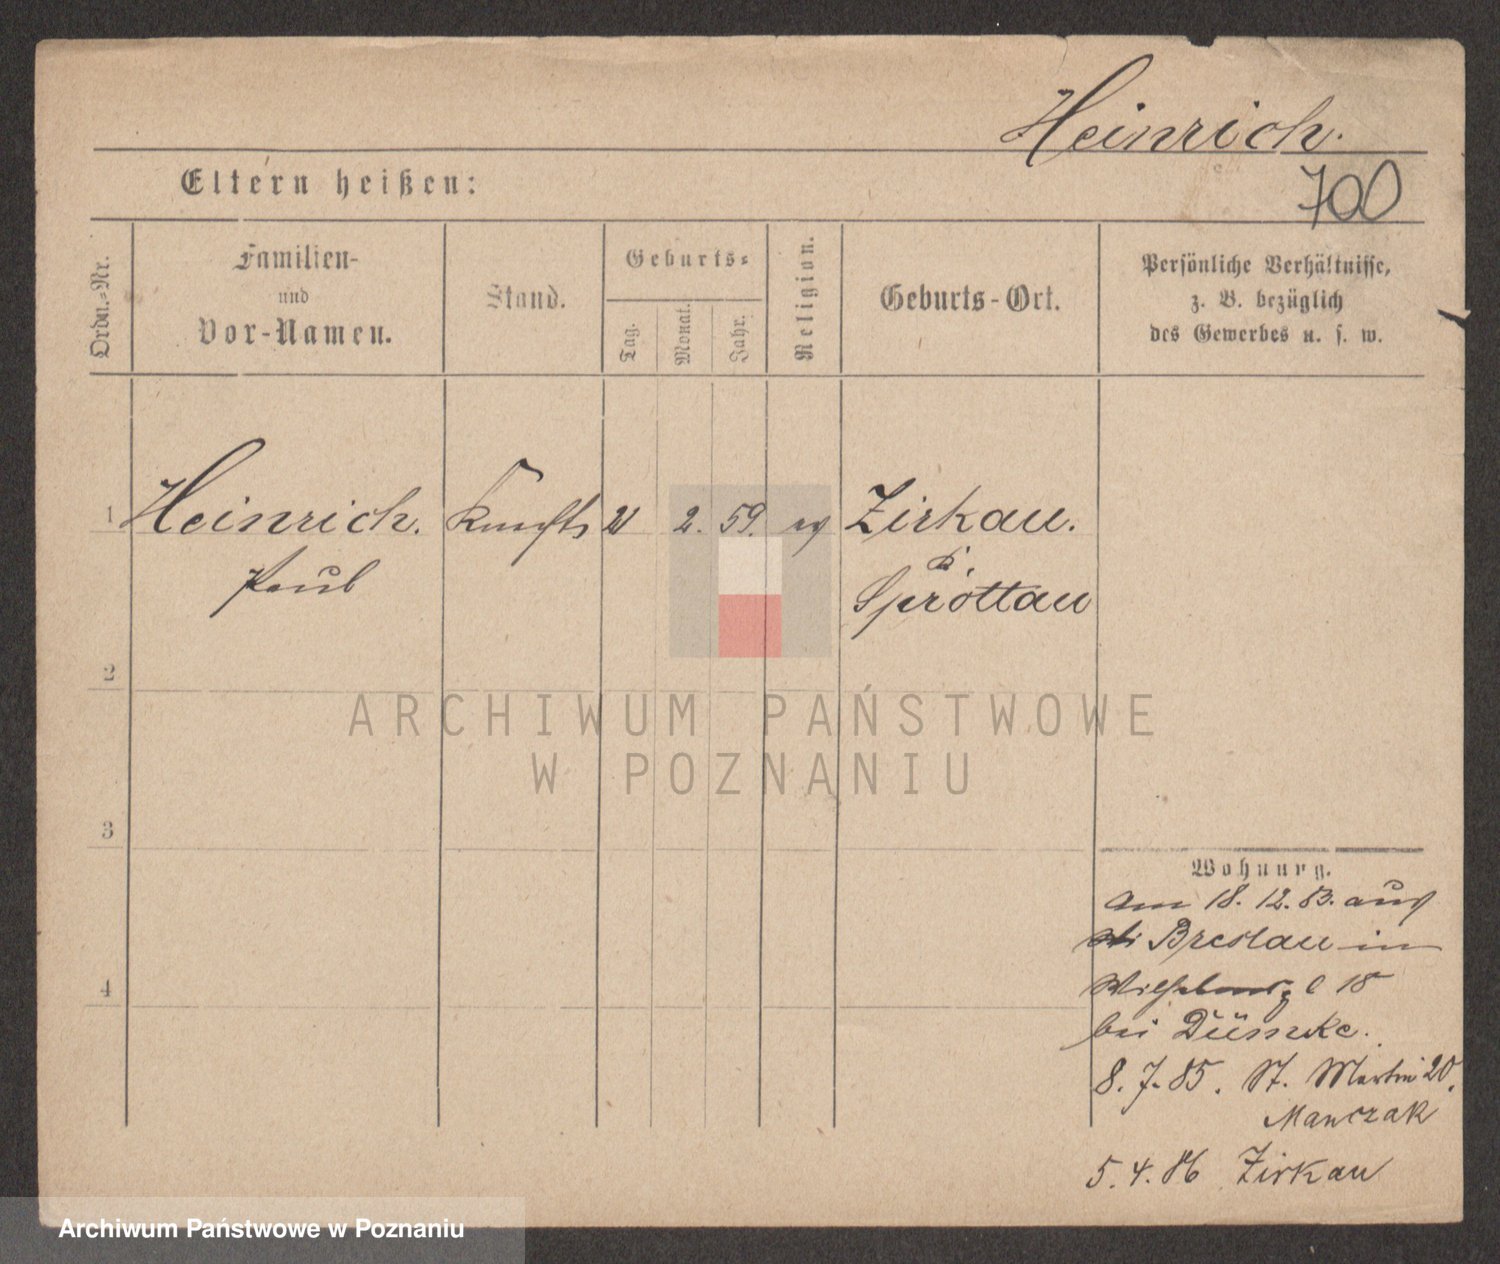 Heinrich.
Eltern heißen:
700
Ordn.-Nr.
Familien-
und
Vor-Namen.
Stand.
Geburts-
Tag.
Monat.
Jahr.
Religion.
Geburts-Ort.
Persönliche Verhältnisse,
z. B. bezüglich
des Gewerbes u. s. w.
1 Heinrich. 2. 59. Zirkau.
Paul
Sprottau
2
3
4
ARCHIWUM PAŃSTWOWE
W POZNANIU
Wohnung.
am 18. 12. 83. aus
Breslau in
18
bei Dümke.
8. 7. 85. St. Martin 20.
Manczak
5. 4. 86 Zirkau
Archiwum Państwowe w Poznaniu